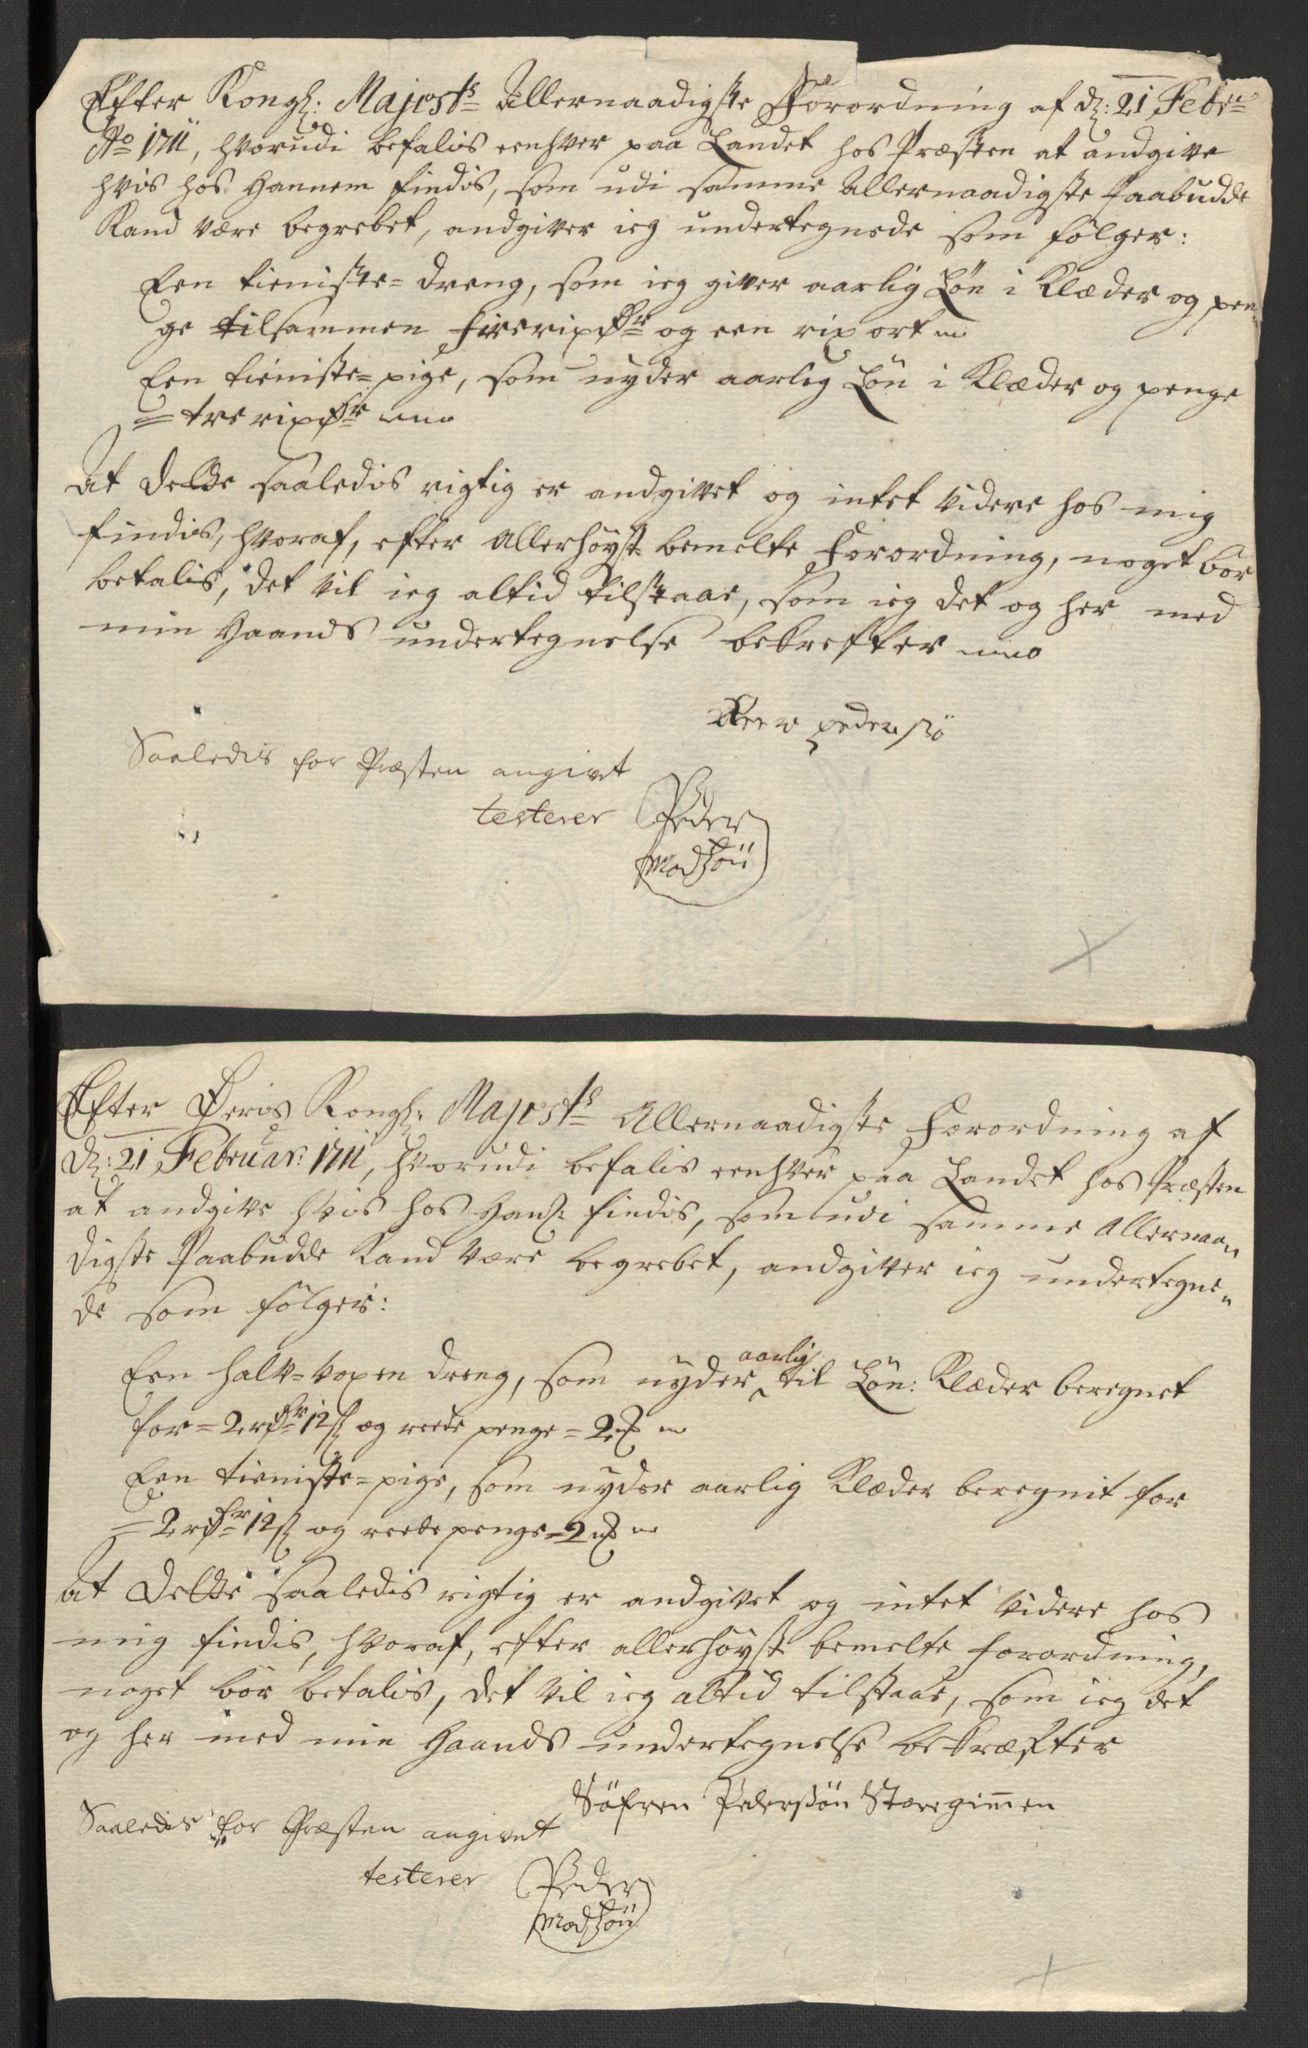 Efter Kongl: Majests Allernaadigste Forordning af dl: 21 Febr:
Ao 1711, hvorudi befalis eenhver paa Landet hos Præsten at andgive
hvis hos hannem findis, som udi samme Allernaadigste Paabudde
Kand være begrebet, andgiver ieg undertegnede som følger:
Een tieniste=dreng, som ieg giver aarlig Løn i Klæder og pen=
ge tilsammen fire rixdr og een rix ort
Een tieniste=pige, som nyder aarlig Løn i Klæder og penge
= tre rixdr
At dette saaledis rigtig er andgivet og intet videre hos mig
findis, hvoraf, efter Allerhøyst bemelte Forordning, noget bør
betalis, det vil ieg altid tilstaae, som ieg det og her med
min Haands undertegnelse bekrefter
peder
Saaledis for Præsten angivet
testerer Peder
Madsøn
Efter Deris Kongl: Majests Allernaadigste Forordning af
dl: 21 Februar: 1711, hvorudi befalis eenhver paa Landet hos Præsten
at andgive hvis hos Han: findis, som udi samme Allernaa=
digste Paabudde Kand være begrebet, andgiver ieg undertegne=
de som følger:
Een halv=voxen dreng, som nyder aarlig til Løn: Klæder beregnet
for = 2 rdr 12 s og reede penge = 2
Een tieniste=pige, som nyder aarlig Klæder beregnit for
= 2 rdr 12 s og reede penge = 2
at dette saaledis rigtig er andgivet og intet videre hos
mig findis, hvoraf, efter allerhøyst bemelte forordning,
noget bør betalis, det vil ieg altid tilstaae, som ieg det
og her med min Haands undertegnelse bekræfter
Søfren Pedersøn Staregimmen
Saaledis for Præsten angivet
testerer Peder
Madsøn